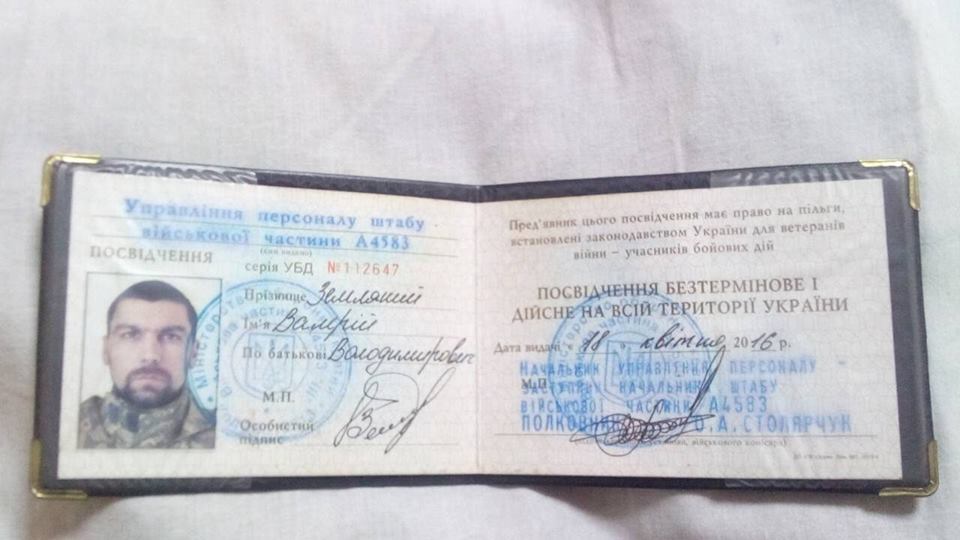 Управління персоналу штабу
військової частини А4583
(ким видано)
ПОСВІДЧЕННЯ
серія УБД №112647
Прізвище Земляний
Ім'я Валерій
По батькові Володимирович
М.П.
Особистий
підпис
Пред'явник цього посвідчення має право на пільги,
встановлені законодавством України для ветеранів
війни – учасників бойових дій
ПОСВІДЧЕННЯ БЕЗТЕРМІНОВЕ І
ДІЙСНЕ НА ВСІЙ ТЕРИТОРІЇ УКРАЇНИ
Дата видачі « 18 » квітня 2016 р.
НАЧАЛЬНИК УПРАВЛІННЯ ПЕРСОНАЛУ –
М.П.
ЗАСТУПНИК НАЧАЛЬНИКА ШТАБУ
ВІЙСЬКОВОЇ ЧАСТИНИ А4583
ПОЛКОВНИК О.А.СТОЛЯРЧУК
військового комісара)